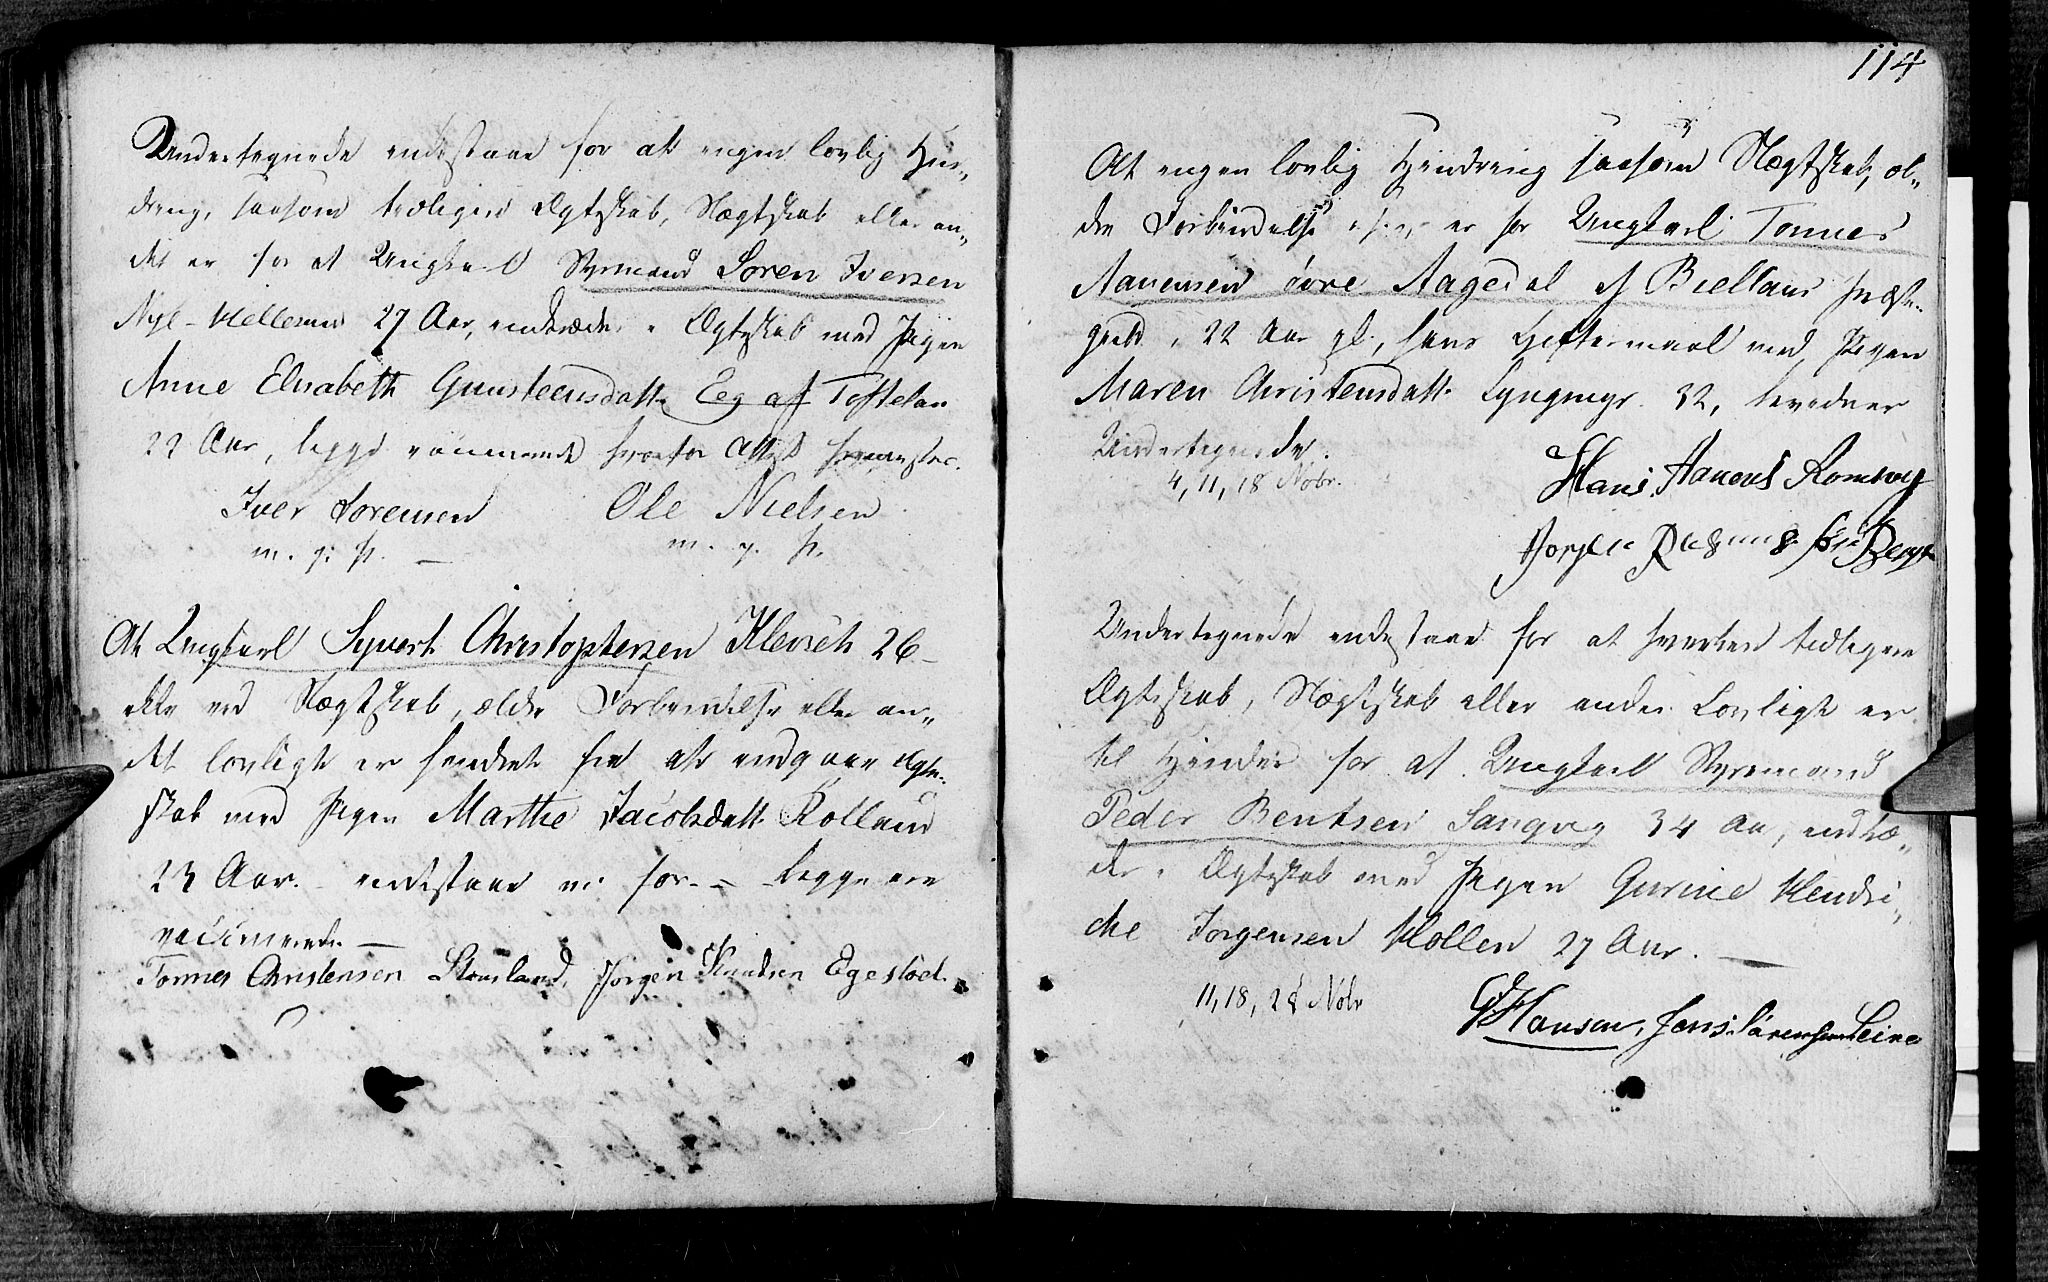 Undertegnede indestaae for at ingen lovlig Hin-
dring, saasom tidligere Ægteskab, Slægtskab eller an-
det er for at Ungkarl Styrmand Soren Iversen
Hellesund 27 Aar, indtræder i Ægteskab med Pigen
Anne Elisabeth Gunsteensdatt. Eeg af Tofteland
22 Aar, begge vaccinerede hvorfor Attest
Iver Sorensen Ole Nielsen
m. p: p. m. p. p.
At Ungkarl Syvert Christophersen Kleiseh 26
ikke ved Slægtskab, ældre Forbindelse eller an-
det lovligt er hindret fra at indgaae Ægte-
skab med Pigen Marthe Jacobsdatt. Rolland
23 Aar. indestaae vi for. Begge ere
vaccinerede.
Tønnes Christensen Stausland, Jørgen Knudsen Egestød.
114
At ingen lovlig Hindring saasom Slægtskab, æl-
dre Forbindelse er for Ungkarl Tønnes
Aanensen øvre Aagedal af Biellans Præste-
gield, 22 Aar gl., hans Giftermaal med Pigen
Maren Christensdatt. Lyngmyr 32, bevidner
Undertegnede.
4, 11, 18 Nobr.
Hans Aanens Romsvig
Jørgen
Undertegnede indestaae for at hverken tidligere
Ægteskab, Slægtskab eller andet Lovligt er
til Hinder for at Ungkarl Styrmand
Peder Bentsen Sangvig 34 Aar, indtræ-
der i Ægteskab med Pigen Gurine Hendri-
che Jorgensen Hollen 27 Aar.
11, 18, 28 Nobr
Hansen, Jens Sørensen Leire